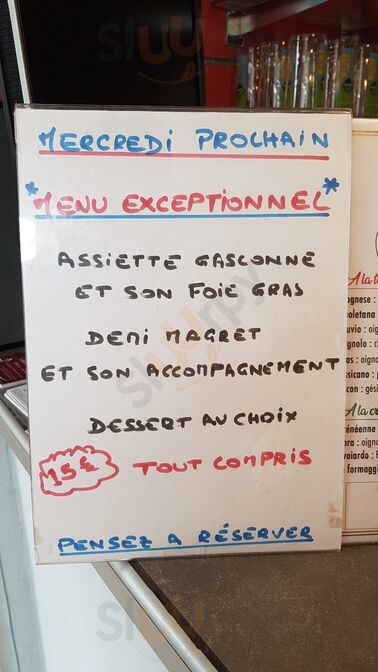 MERCREDI PROCHAIN
*MENU EXCEPTIONNEL*
ASSIETTE GASCONNE
ET SON FOIE GRAS
DEMI MAGRET
ET SON ACCOMPAGNEMENT
DESSERT AU CHOIX
15€ TOUT COMPRIS
PENSEZ A RÉSERVER
A la t
ognese :
poletana
uvio : oig
gnolo : cl
as : oigna
ssicano :
con : gési
A la cr
rénéenne
ora : oign
voiardo :
formaggi
sluurpy